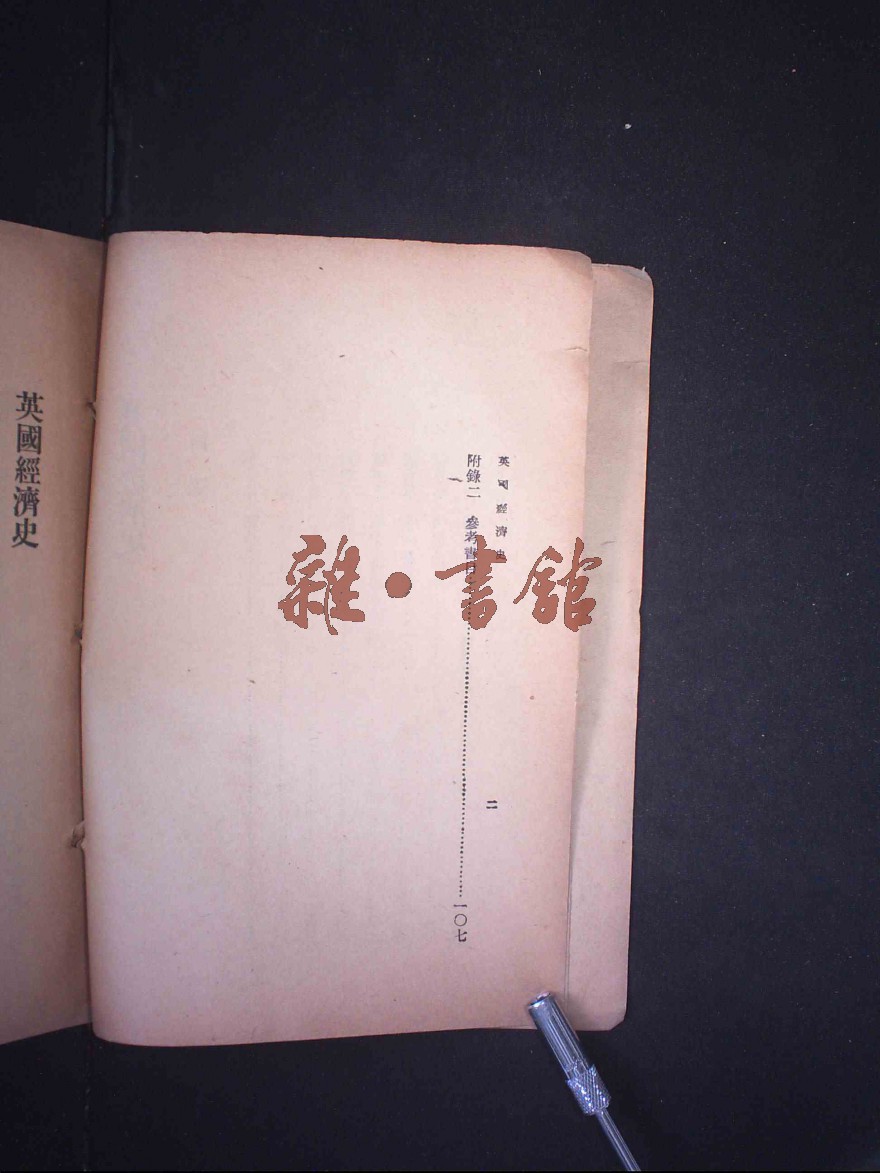 英國經濟史
二
附錄二　參考書目……一〇七
英國經濟史
雜·書館